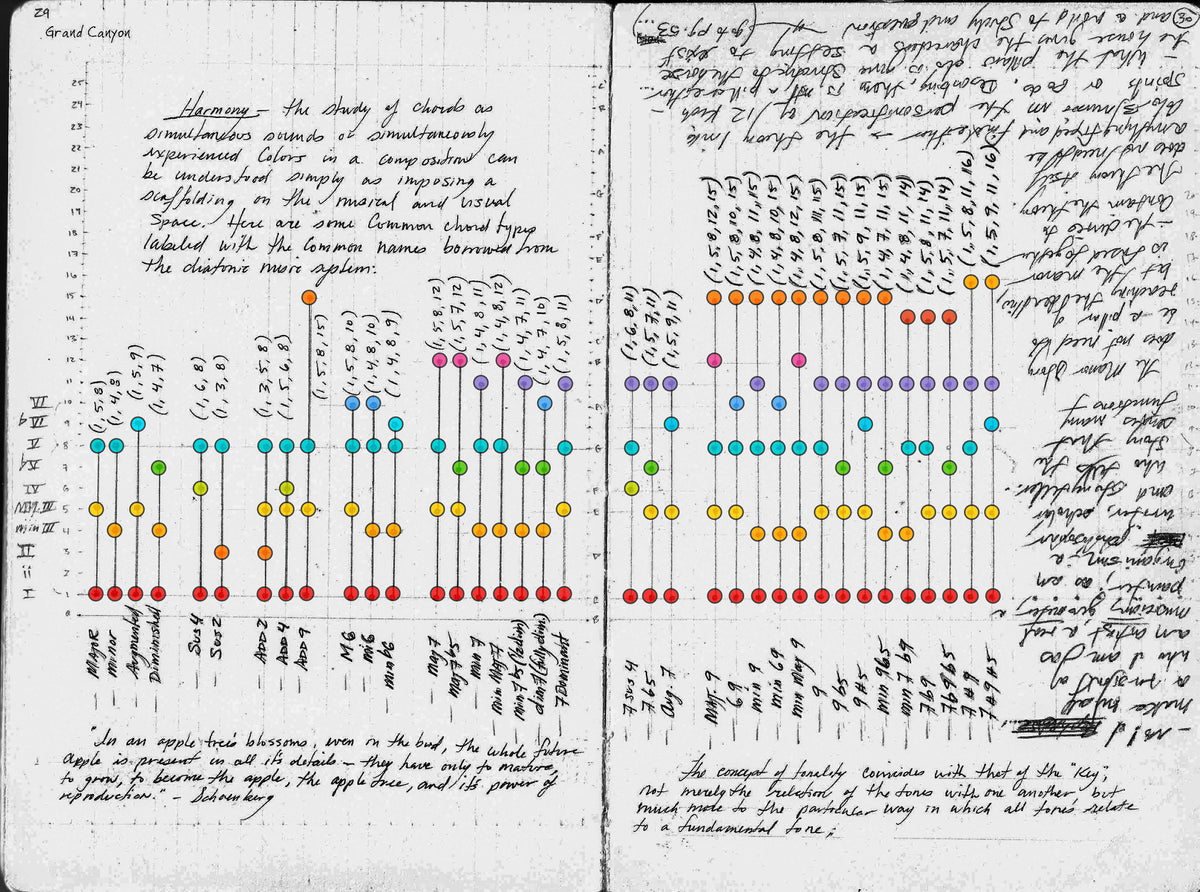 29
Grand Canyon
Harmony – the study of chords as
simultaneous sounds or simultaneously
experienced colors in a composition can
be understood simply as imposing a
scaffolding on the musical and visual
space. Here are some common chord types
labeled with the common names borrowed from
the diatonic music system:
25
24
23
22
21
20
19
18
17
16
15
14
13
12
11
10
9
8
7
6
5
4
3
2
1
0
V
IV
Maj. III
min III
II
ii
I
(1,5,8)
(1,4,8)
(1,5,9)
(1,4,7)
(1,6,8)
(1,3,8)
(1,3,5,8)
(1,5,6,8)
(1,5,8,15)
(1,5,8,10)
(1,4,8,10)
(1,4,8,9)
(1,5,8,12)
(1,5,7,12)
(1,4,8,11)
(1,4,8,12)
(1,4,7,11)
(1,4,7,10)
(1,5,8,11)
Major
minor
Augmented
Diminished
Sus4
Sus2
ADD2
ADD4
ADD9
M6
mi6
min b6
maj7
Maj7b5
min 7
min Maj7
min7b5 (½dim)
dim7 (fully dim)
7Dominant
"In an apple tree's blossoms, even in the bud, the whole future
apple is present in all its details – they have only to mature,
to grow, to become the apple, the apple tree, and its power of
reproduction." – Schoenberg
30
(1,6,8,11)
(1,5,7,11)
(1,5,9,11)
(1,5,8,12,15)
(1,5,8,10,15)
(1,4,8,11,15)
(1,4,8,10,15)
(1,4,8,12,15)
(1,5,8,11,15)
(1,5,7,11,15)
(1,5,9,11,15)
(1,4,7,11,15)
(1,4,8,11,14)
(1,5,8,11,14)
(1,5,7,11,14)
(1,5,8,11,16)
(1,5,9,11,16)
7sus4
7b5
Aug. 7
Maj. 9
69
min 9
min 69
min Maj 9
9
9b5
9#5
min 9b5
min7 b9
7b9
7b9b5
7#9
7#9#5
The concept of tonality coincides with that of the "Key",
not merely the relation of the tones with one another but
much more to the particular way in which all tones relate
to a fundamental tone;
– No! I
make myself
a
who I am
an artist, a real
musician
painter, as an
organism, a
philosopher
writer, scholar
and storyteller.
who tells the
story that
serves many
functions
The Manor Story
does not need to
be a pillar of
teaching
but the manor
is fused together
– the desire to
contain the theory.
The theory itself
does not need to be
anything typed and
the theory
the personification of 12 pitch
points or so. Describing them is not a pillar either
– What the pillars do is give structure to the house
the house gives the characters a setting to exist
and a world to study and question
(goto pg. 53